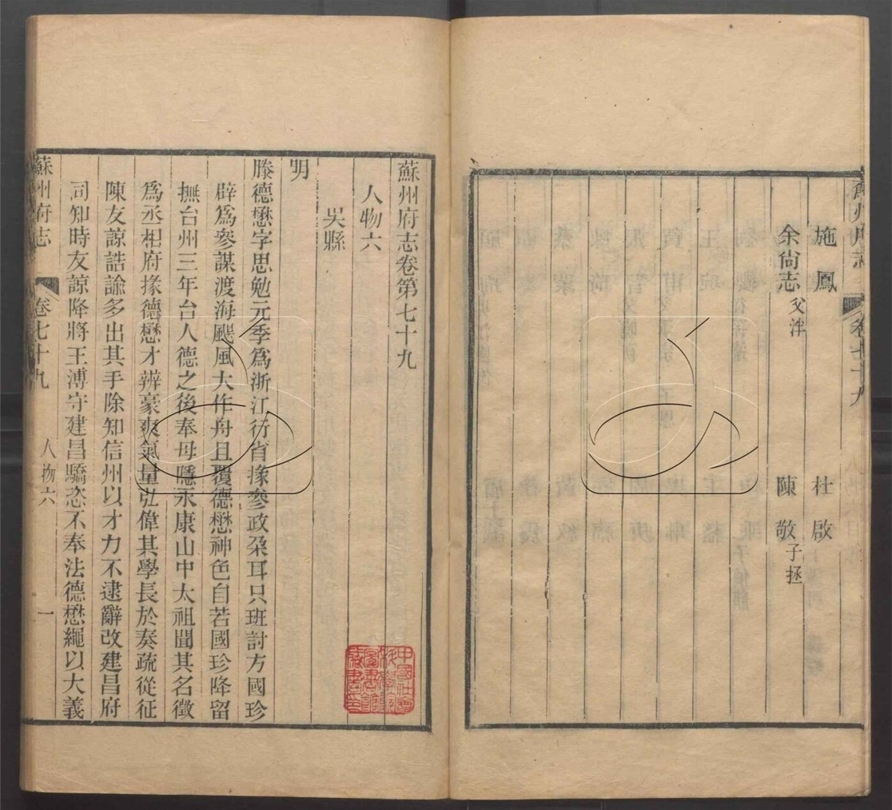 施鳳 杜啟
余尙志 父洋 陳敬 子拯
蘇州府志卷第七十九
人物六
吳縣
明
滕德懋字思勉元季爲浙江行省掾參政朶耳只班討方國珍
辟爲參謀渡海颶風大作舟且覆德懋神色自若國珍降留
撫台州三年台人德之後奉母隱永康山中太祖聞其名徵
爲丞相府掾德懋才辨豪爽氣量弘偉其學長於奏疏從征
陳友諒誥諭多出其手除知信州以才力不逮辭改建昌府
同知時友諒降將王溥守建昌驕恣不奉法德懋繩以大義
蘇州府志 卷七十九 人物六 一